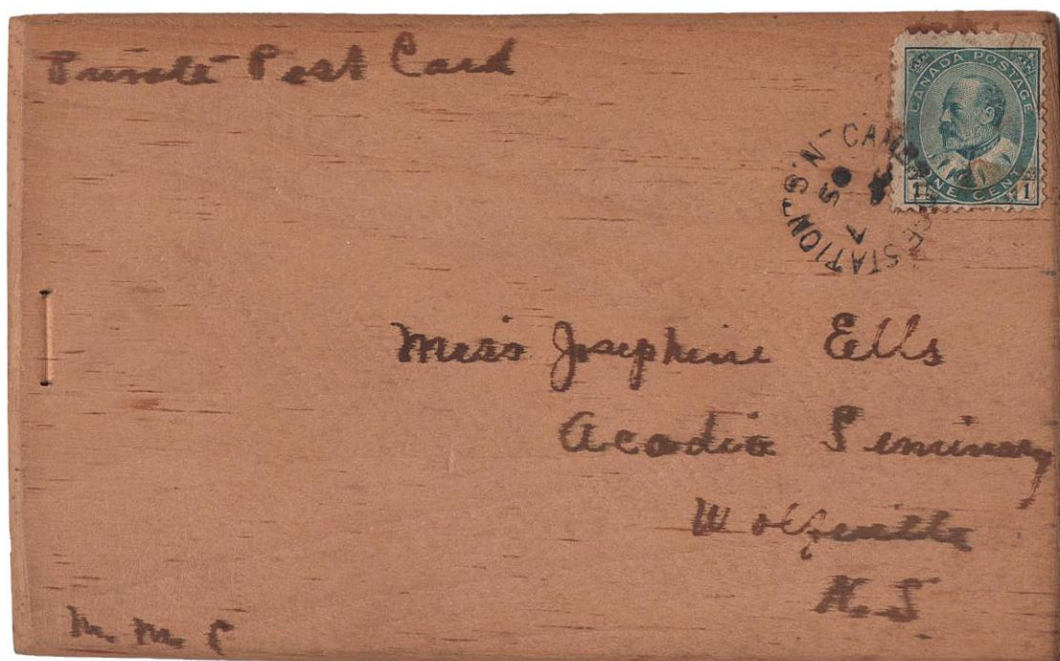 Private Post Card
CANADA POSTAGE
1 ONE CENT 1
CAMBRIDGE STATION N.S.
Miss Josephine Ells
Acadia Seminary
Wolfville
N.S
M. M. C